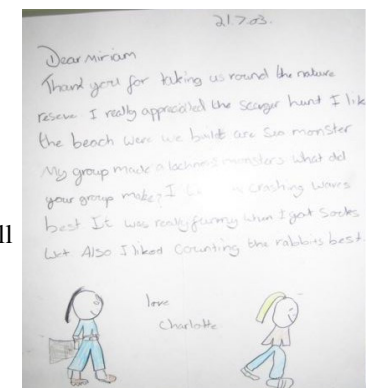 21.7.03.
Dear Miriam
Thank you for taking us round the nature
reserve I really appreciated the scavger hunt I like
the beach were we built are Sea monster
My group made a lochness monsters what did
your group make? I crashing waves
best It was really funny when I got socks
wet Also I liked counting the rabbits best.
ll
love
Charlotte